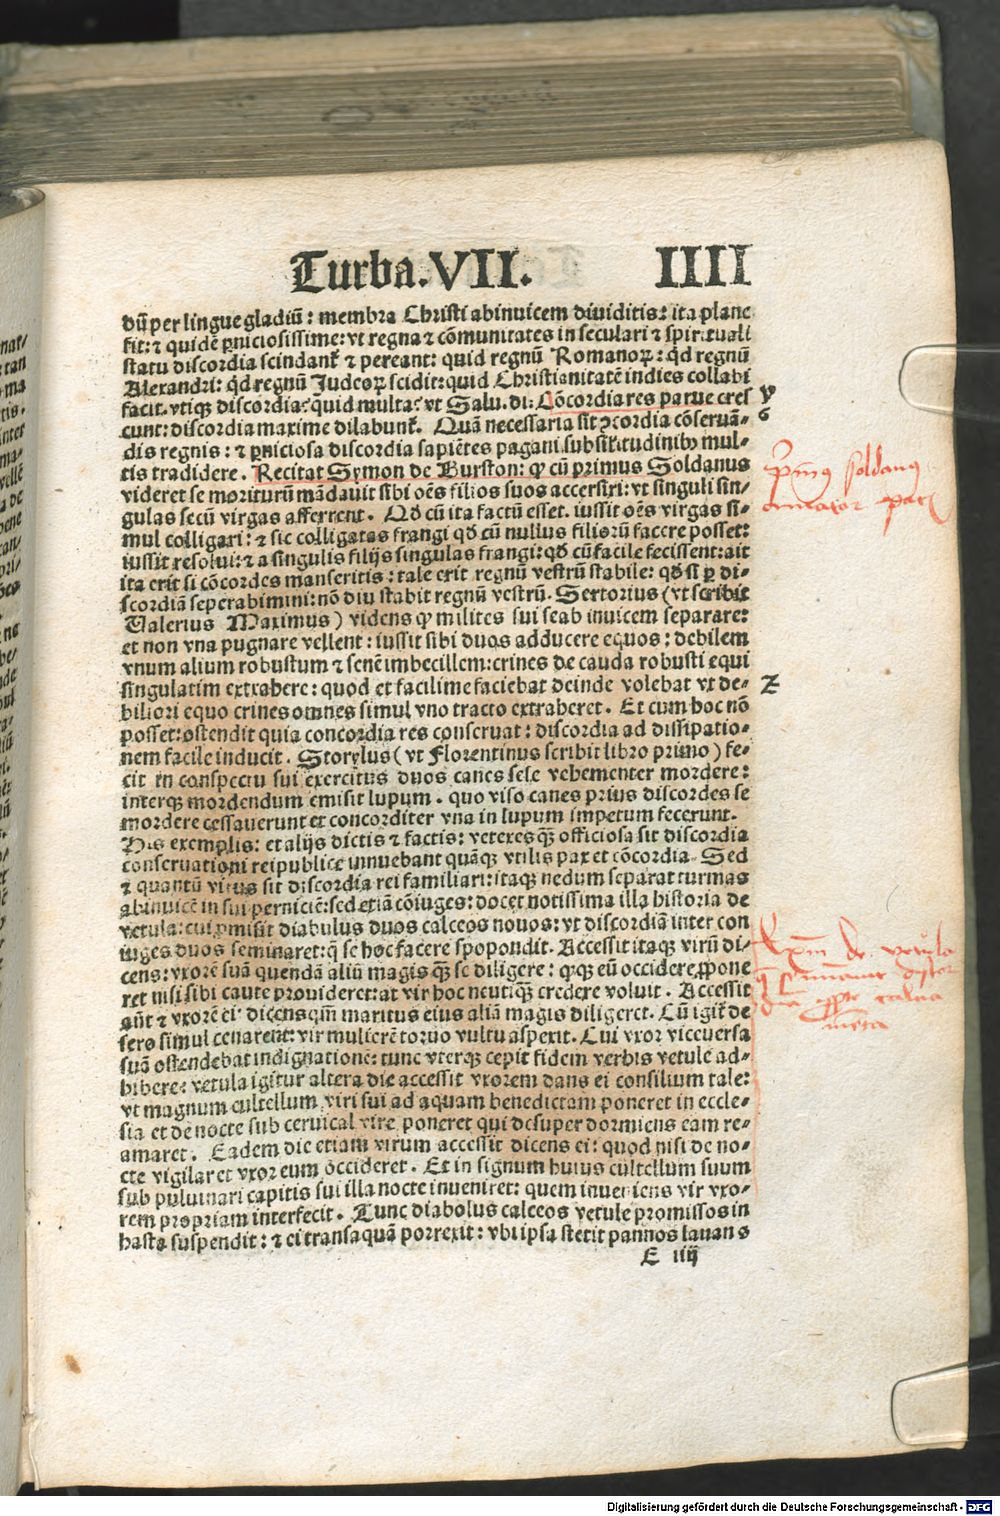 Turba.VII. IIII
dũ per lingue gladiũ: membra Christi abinuicem diuiditis: ita plane
fit: ⁊ quidẽ ꝑniciosissime: vt regna ⁊ cõmunitates in seculari ⁊ spirituali
statu discordia scindant᷑ ⁊ pereant: quid regnũ Romanoꝝ: qd regnũ
Alexandri: qd regnũ Judeoꝝ scidit: quid Christianitatẽ indies collabi
facit. vtiqꝫ discordia: quid multa: vt Salu. di: Cõcordia res parue cres y
cunt: discordia maxime dilabunt᷑. Quã necessaria sit ꝯcordia cõseruã⸗ 6
dis regnis: ⁊ ꝑniciosa discordia sapiẽtes pagani similitudinibꝰ mul⸗
tis tradidere. Recitat Symon de Burston: ꝙ cũ primus Soldanus
videret se moriturũ mãdauit sibi oẽs filios suos accersiri: vt singuli sin⸗
gulas secũ virgas afferrent. Qd cũ ita factũ esset. iussit oẽs virgas si⸗
mul colligari: ⁊ sic colligatas frangi qd cũ nullus filiorũ facere posset:
iussit resolui: ⁊ a singulis filijs singulas frangi: qd cũ facile fecissent: ait
ita erit si cõcordes manseritis: tale erit regnũ vestrũ stabile: qd si ꝑ di⸗
scordiã seperabimini: nõ diu stabit regnũ vestrũ. Sertorius (vt scribit
Valerius Maximus) videns ꝙ milites sui se ab inuicem separare:
et non vna pugnare vellent: iussit sibi duos adducere equos: debilem
vnum alium robustum ⁊ senẽ imbecillem: crines de cauda robusti equi
singulatim extrahere: quod et facilime faciebat deinde volebat vt de⸗ z
biliori equo crines omnes simul vno tracto extraheret. Et cum hoc nõ
posset: ostendit quia concordia res conseruat: discordia ad dissipatio⸗
nem facile inducit. Storylus (vt Florentinus scribit libro primo) fe⸗
cit in conspectu sui exercitus duos canes sese vehementer mordere:
interqꝫ mordendum emisit lupum. quo viso canes prius discordes se
mordere cessauerunt et concorditer vna in lupum impetum fecerunt.
His exemplis: et alijs dictis ⁊ factis: veteres q̃ꝫ officiosa sit discordia
conseruationi reipublice innuebant quãqꝫ vtilis pax et cõcordia. Sed
⁊ quantũ virus sit discordia rei familiari: itaqꝫ nedum separat turmas
abinuicẽ in sui perniciẽ: sed etiã cõiuges: docet notissima illa historia de
vetula: cui ꝓmisit diabulus duos calceos nouos: vt discordiã inter con
iuges duos seminaret: q̃ se hoc facere spopondit. Accessit itaqꝫ virũ di⸗
cens: vxorẽ suã quendã aliũ magis q̃ꝫ se diligere: qꝫ eũ occidere ꝓpone
ret nisi sibi caute prouideret: at vir hoc neutiq̃ꝫ credere voluit. Accessit
aũt ⁊ vxorẽ ei᷒ dicens qm̃ maritus eius aliã magis diligeret. Cũ igit᷑ de
sero simul cenarent: vir mulierẽ toruo vultu aspexit. Cui vxor viceuersa
suã ostendebat indignationẽ: tunc vterqꝫ cepit fidem verbis vetule ad⸗
hibere: vetula igitur altera die accessit vxorem dans ei consilium tale:
vt magnum cultellum viri sui ad aquam benedictam poneret in eccle⸗
sia et de nocte sub ceruical vire poneret qui desuper dormiens eam re⸗
amaret. Eadem die etiam virum accessit dicens ei: quod nisi de no⸗
cte vigilaret vxor eum occideret. Et in signum huius cultellum suum
sub puluinari capitis sui illa nocte inueniret: quem inueniens vir vxo⸗
rem propriam interfecit. Tunc diabolus calceos vetule promissos in
hasta suspendit: ⁊ ei transaquã porrexit: vbi ipsa stetit pannos lauans
E iiij
soldanus
de vetula
Digitalisierung gefördert durch die Deutsche Forschungsgemeinschaft - DFG